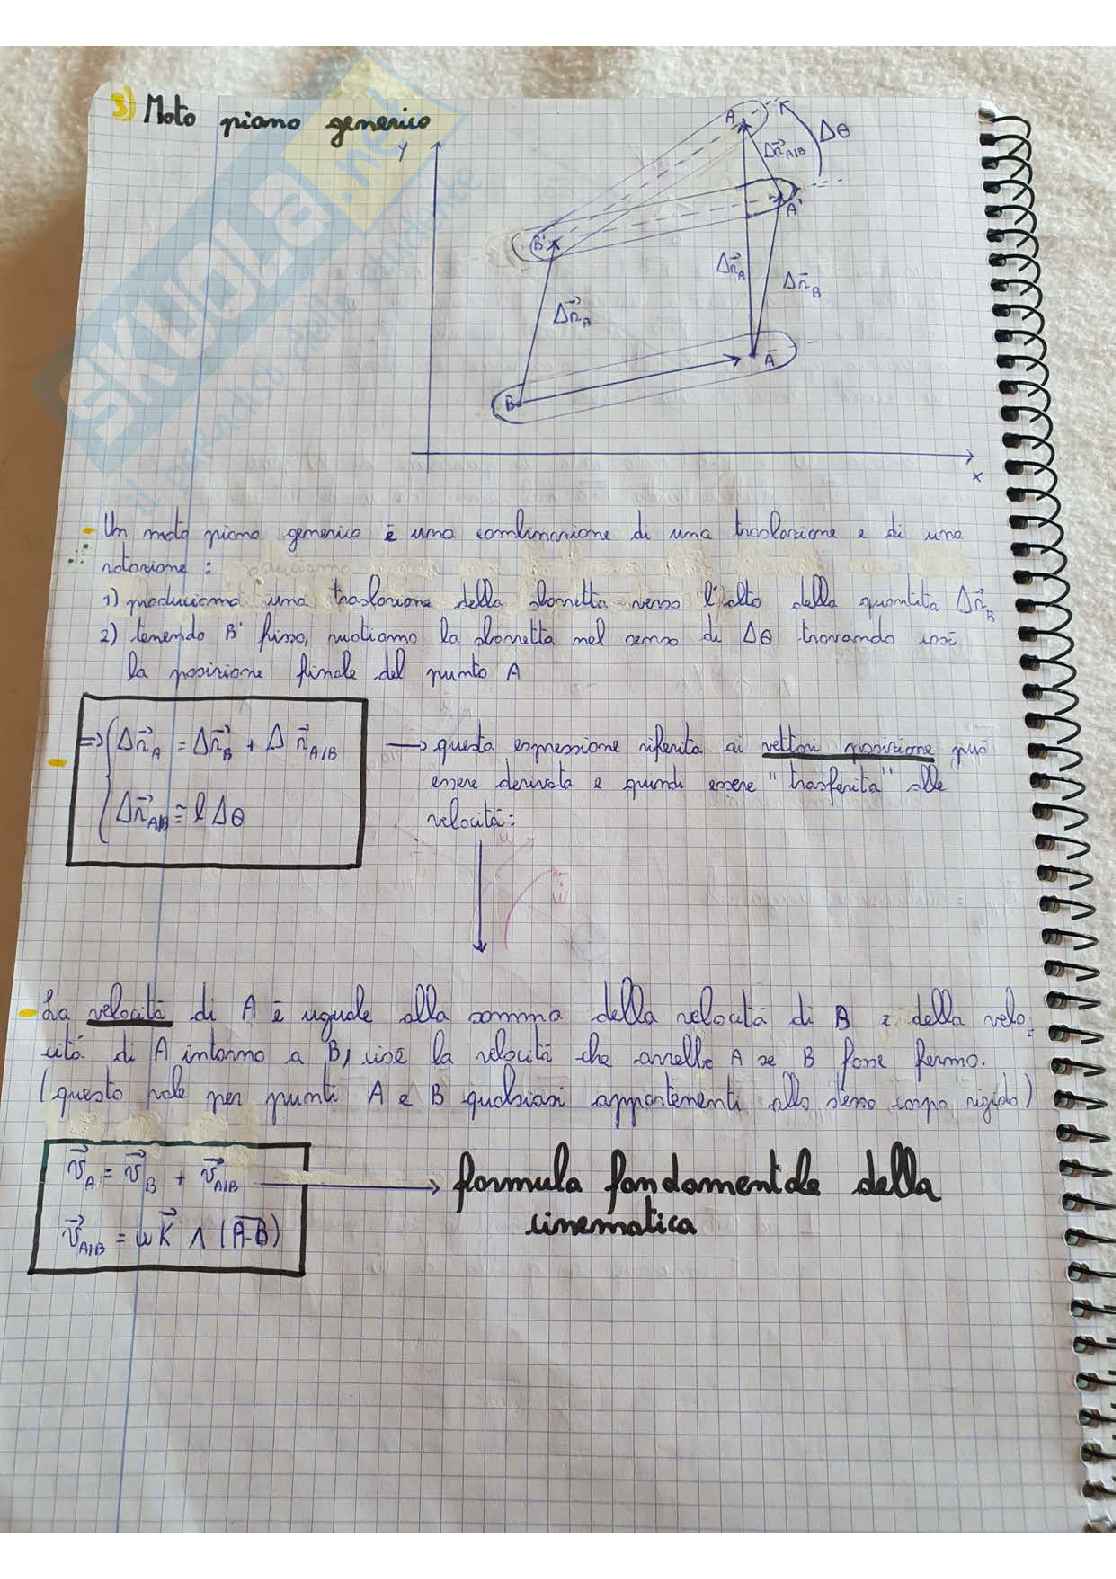 3) Moto piano generico
y
A
Δθ
Δr⃗ A/B
A'
B'
Δr⃗ A
Δr⃗ B
Δr⃗ B
A
B
x
SKUOLA.net
- Un moto piano generico è una combinazione di una traslazione e di una
rotazione:
1) produciamo una traslazione della slorretta verso l'alto della quantità Δr⃗ B
2) tenendo B' fisso, ruotiamo la slorretta nel senso di Δθ trovando così
la posizione finale del punto A
=> { Δr⃗ A = Δr⃗ B + Δ r⃗ A/B → questa espressione riferita ai vettori posizione può
essere derivata e quindi essere "trasferita" alle
Δr⃗ A/B ≅ l Δθ
velocità:
- La velocità di A è uguale alla somma della velocità di B e della velo-
cità di A intorno a B, cioè la velocità che avrebbe A se B fosse fermo.
(questo vale per punti A e B qualsiasi appartenenti allo stesso corpo rigido)
v⃗ A = v⃗ B + v⃗ A/B → formula fondamentale della
cinematica
v⃗ A/B = ω k⃗ ∧ (A-B)